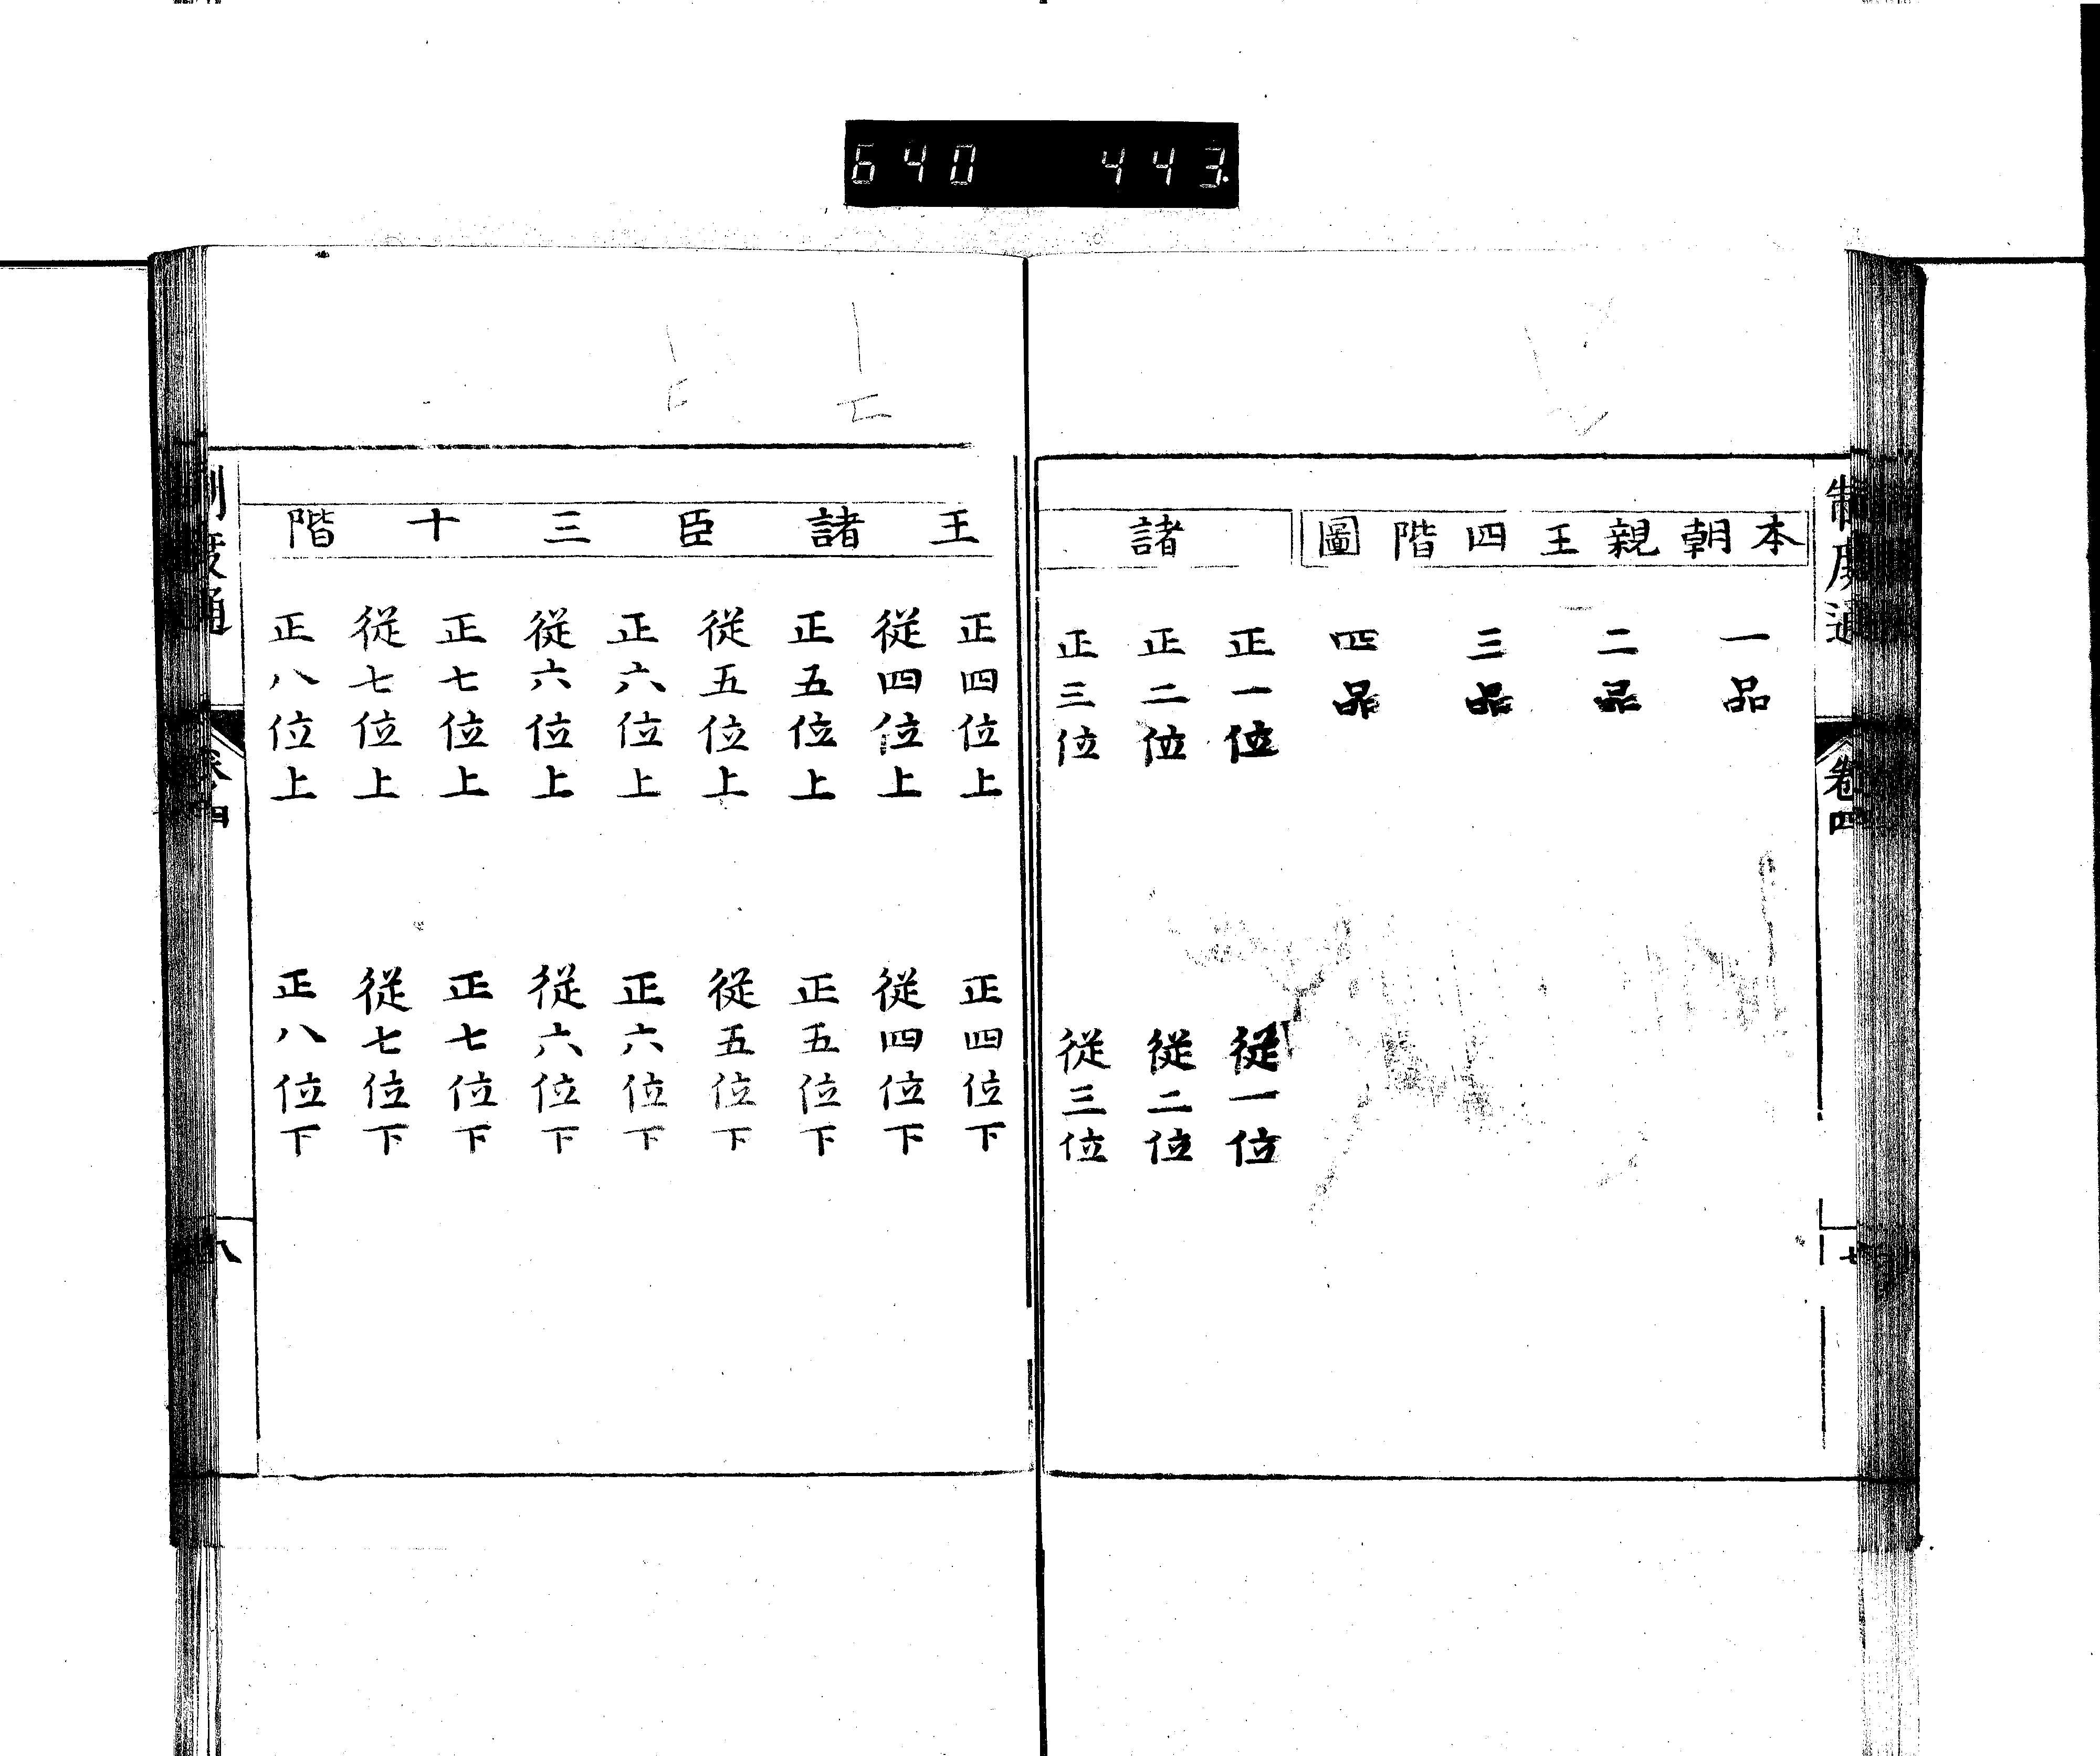 640 443
制度通 卷四 七
本朝親王四階圖
一品
二品
三品
四品
諸
正一位 從一位
正二位 從二位
正三位 從三位
王諸臣三十階
正四位上 正四位下
從四位上 從四位下
正五位上 正五位下
從五位上 從五位下
正六位上 正六位下
從六位上 從六位下
正七位上 正七位下
從七位上 從七位下
正八位上 正八位下
制度通 卷四 八